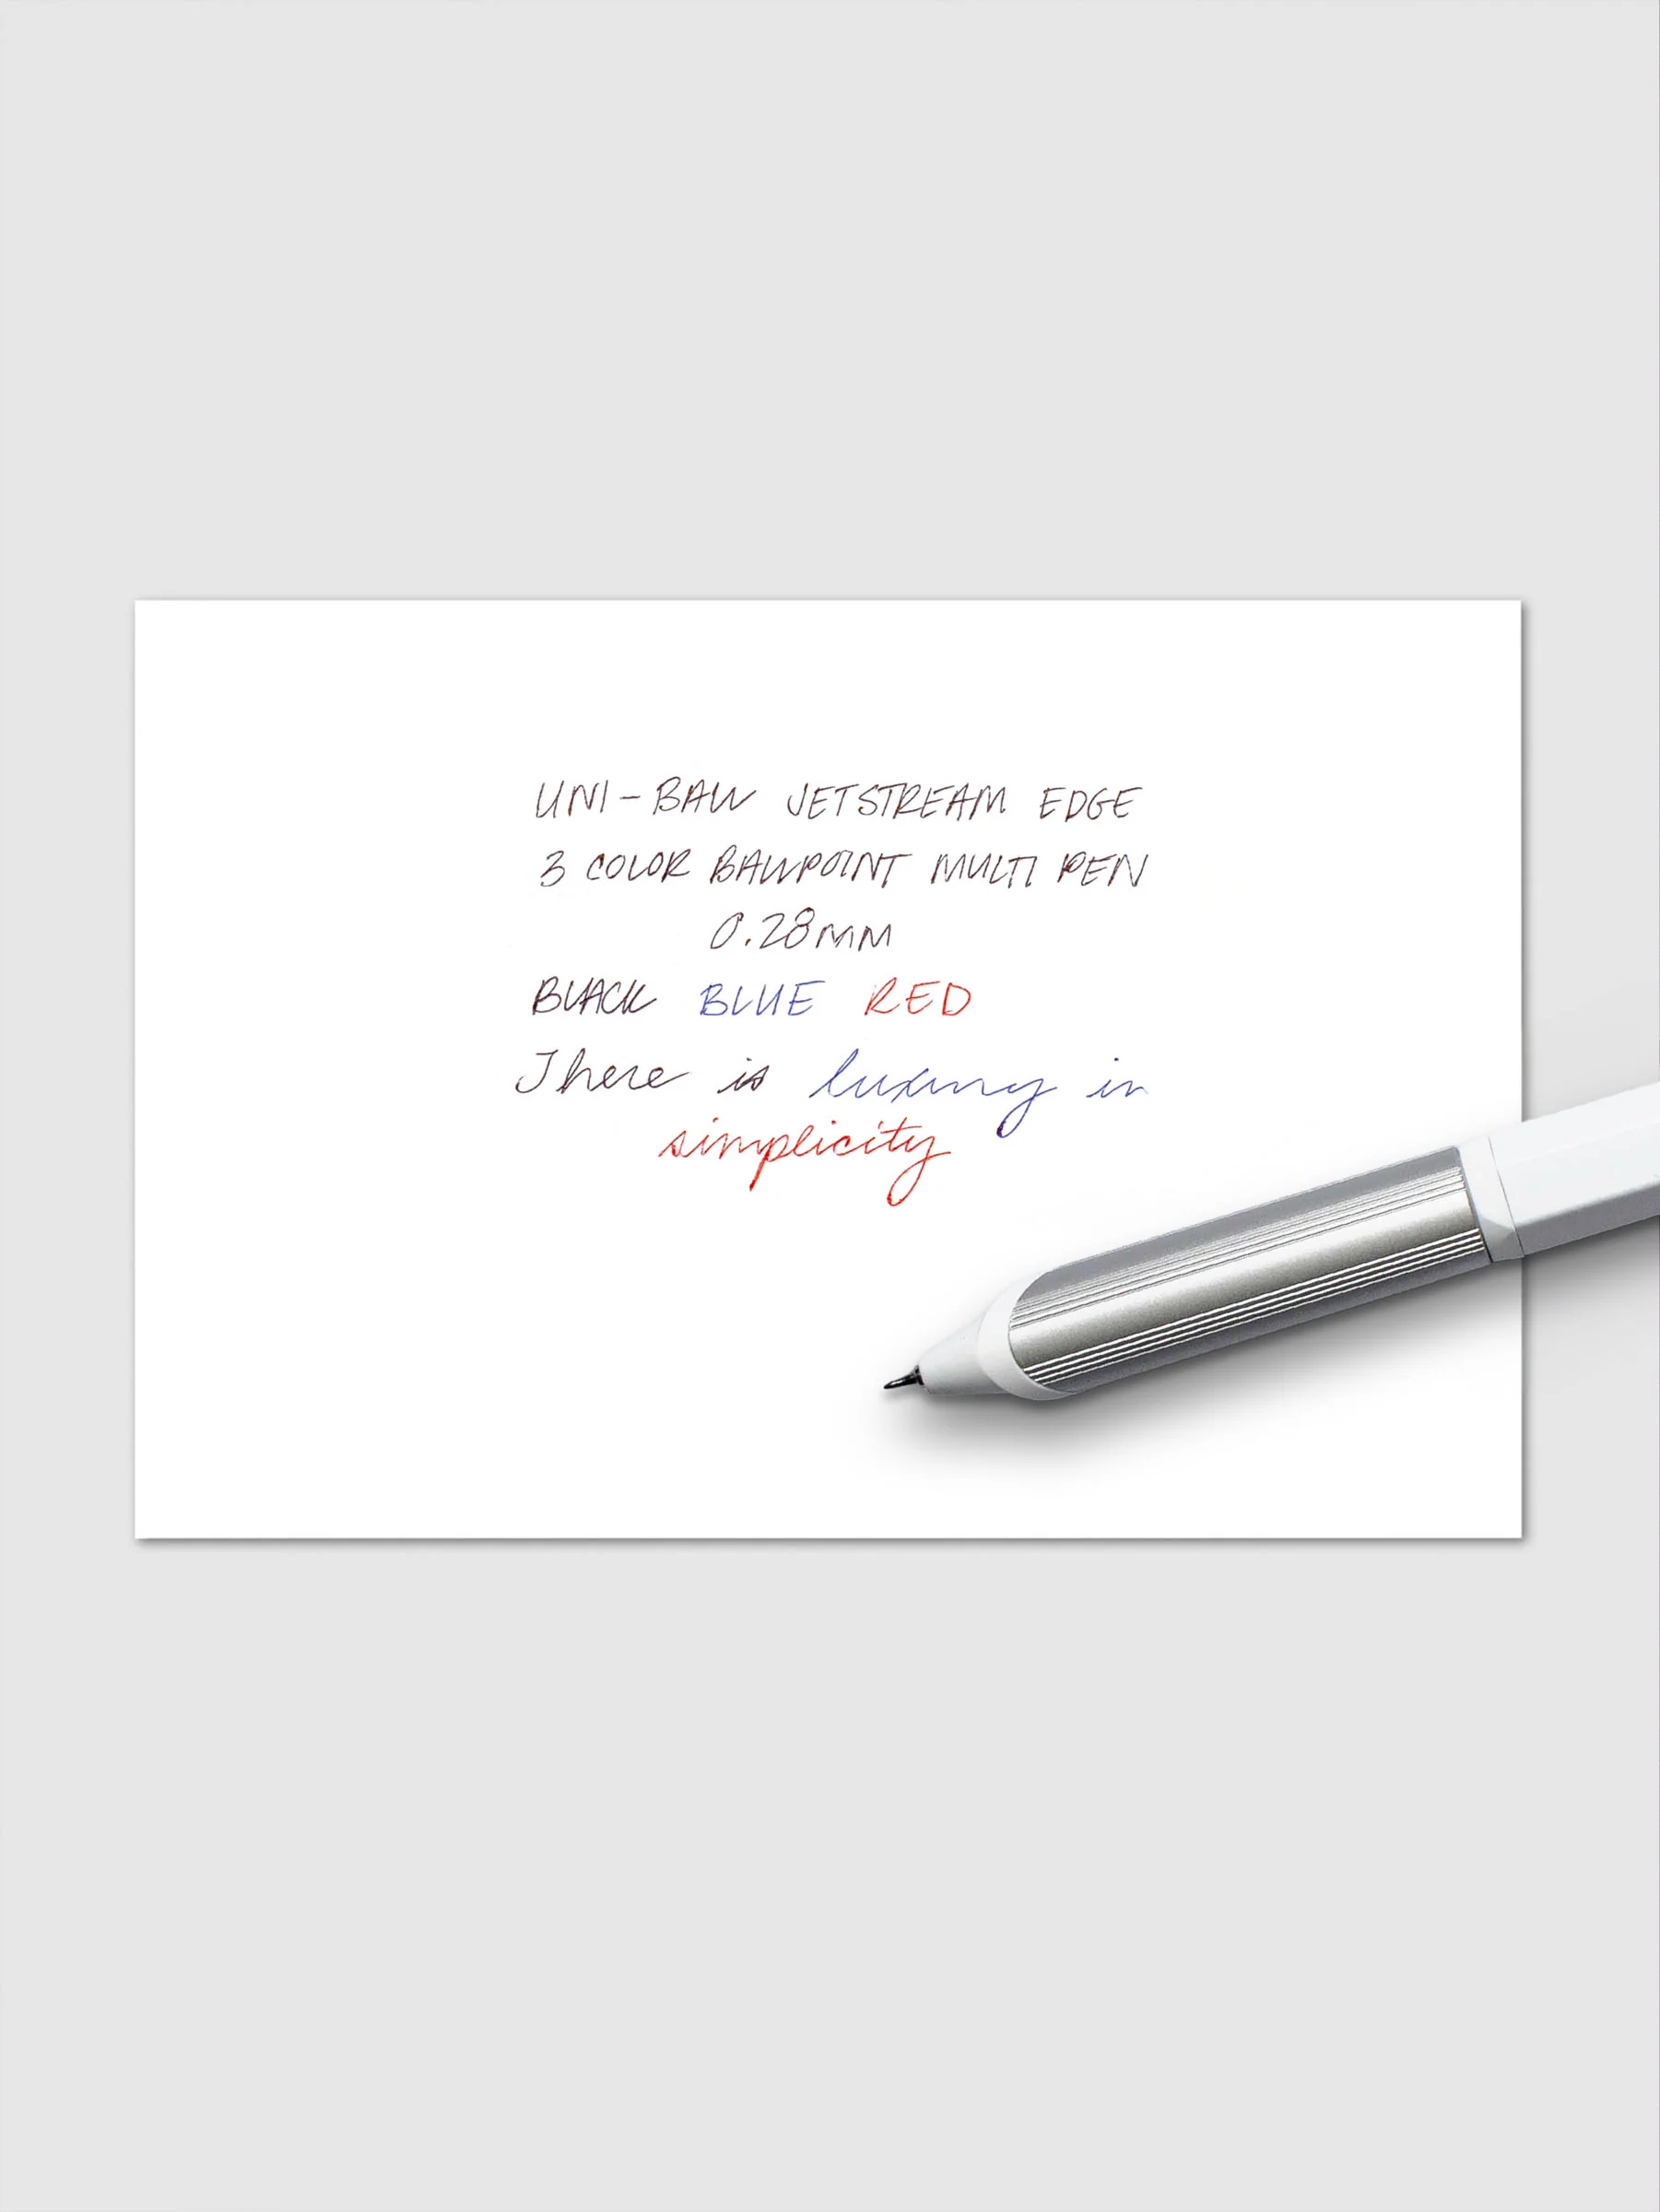 UNI-BALL JETSTREAM EDGE
3 COLOR BALLPOINT MULTI PEN
0.28MM
BLACK BLUE RED
There is luxury in
simplicity